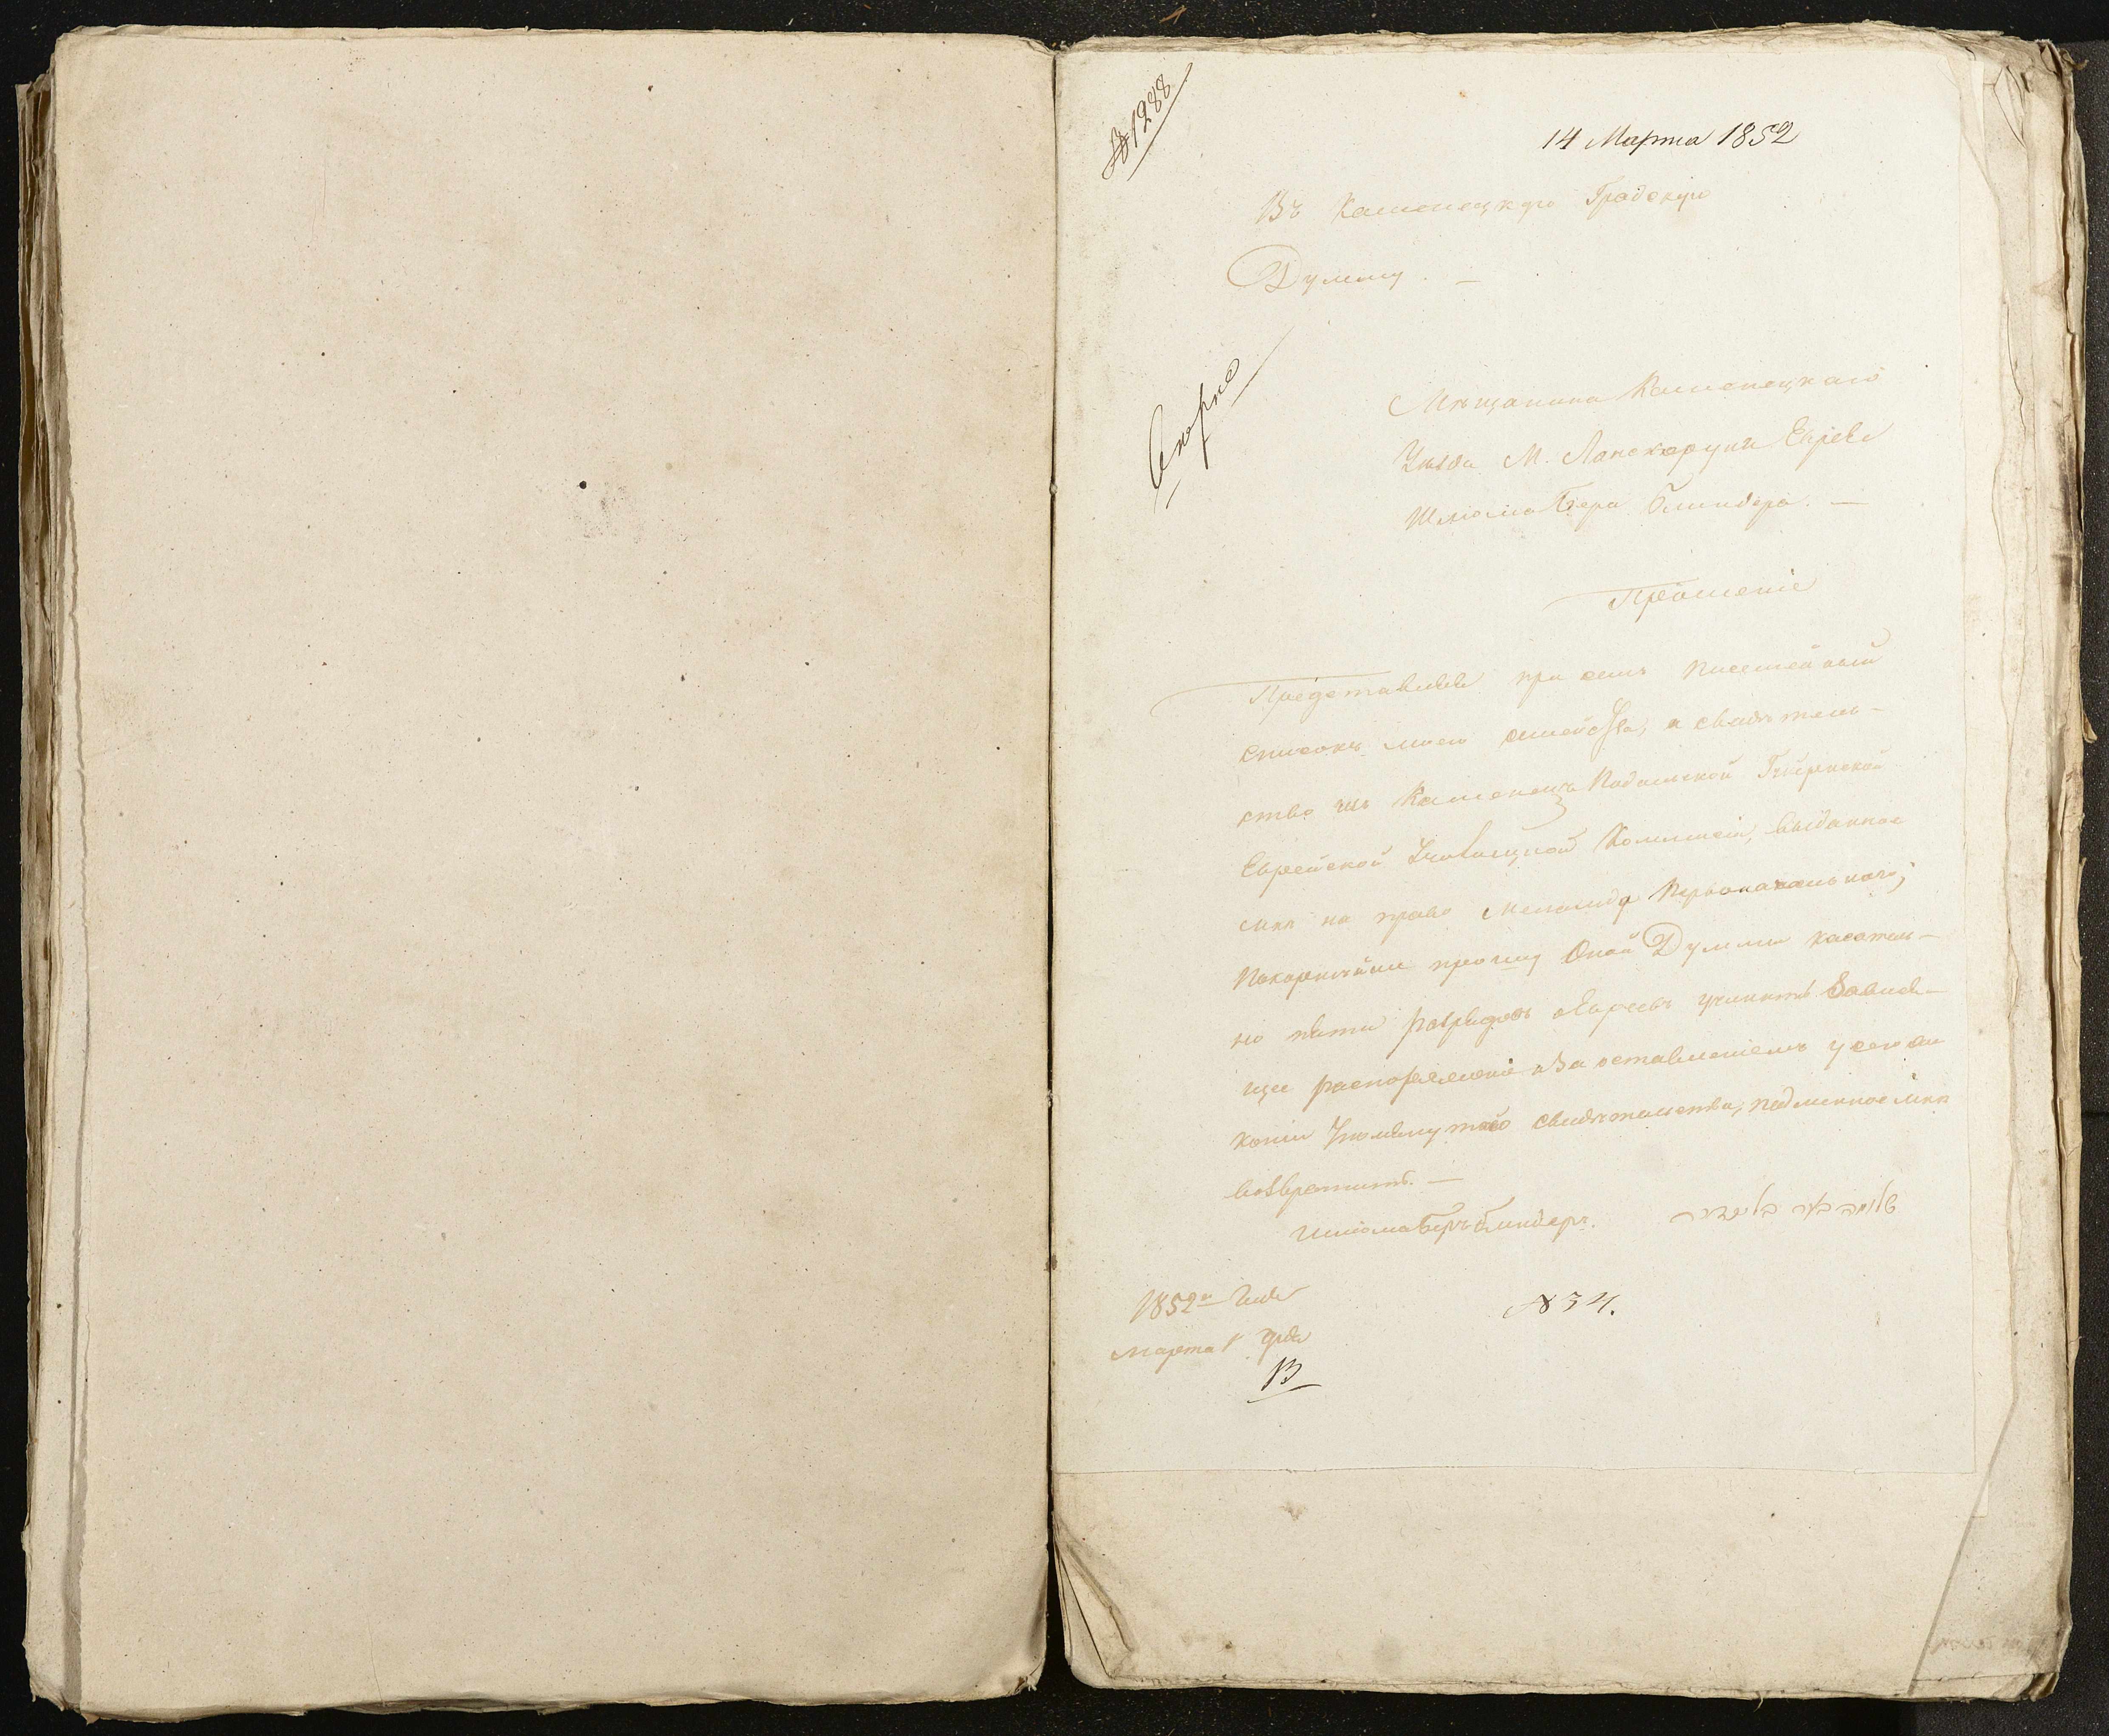 № 1288
14 Марта 1852
Въ Каменецкую Градскую
Думму. —
Скоро
Мѣщанина Каменецкаго
Уѣзда М. Ланскоруня Еврея
Шлiома Бера Блиндера. —
Прошенiе
Представляя при семъ посемейный
списокъ моего семейства, и свидѣтель-
ство изъ Каменецъ Подольской Губернской
Еврейской Училищной Коммисiи, выданное
мнѣ на право Меламида Первоначальнаго;
Покорнѣйше прошу Оной Думмы касатель-
но пяти розрядовъ Евреевъ учинить Завися-
щее распоряженiе а за оставленiемъ у сего
копiи Упомянутаго свидѣтельства, подлинное мнѣ
возвратить. —
Шлiома Беръ Блиндеръ. שלומה בער בלינדער
1852го Года
Марта дня
№ 34.
13